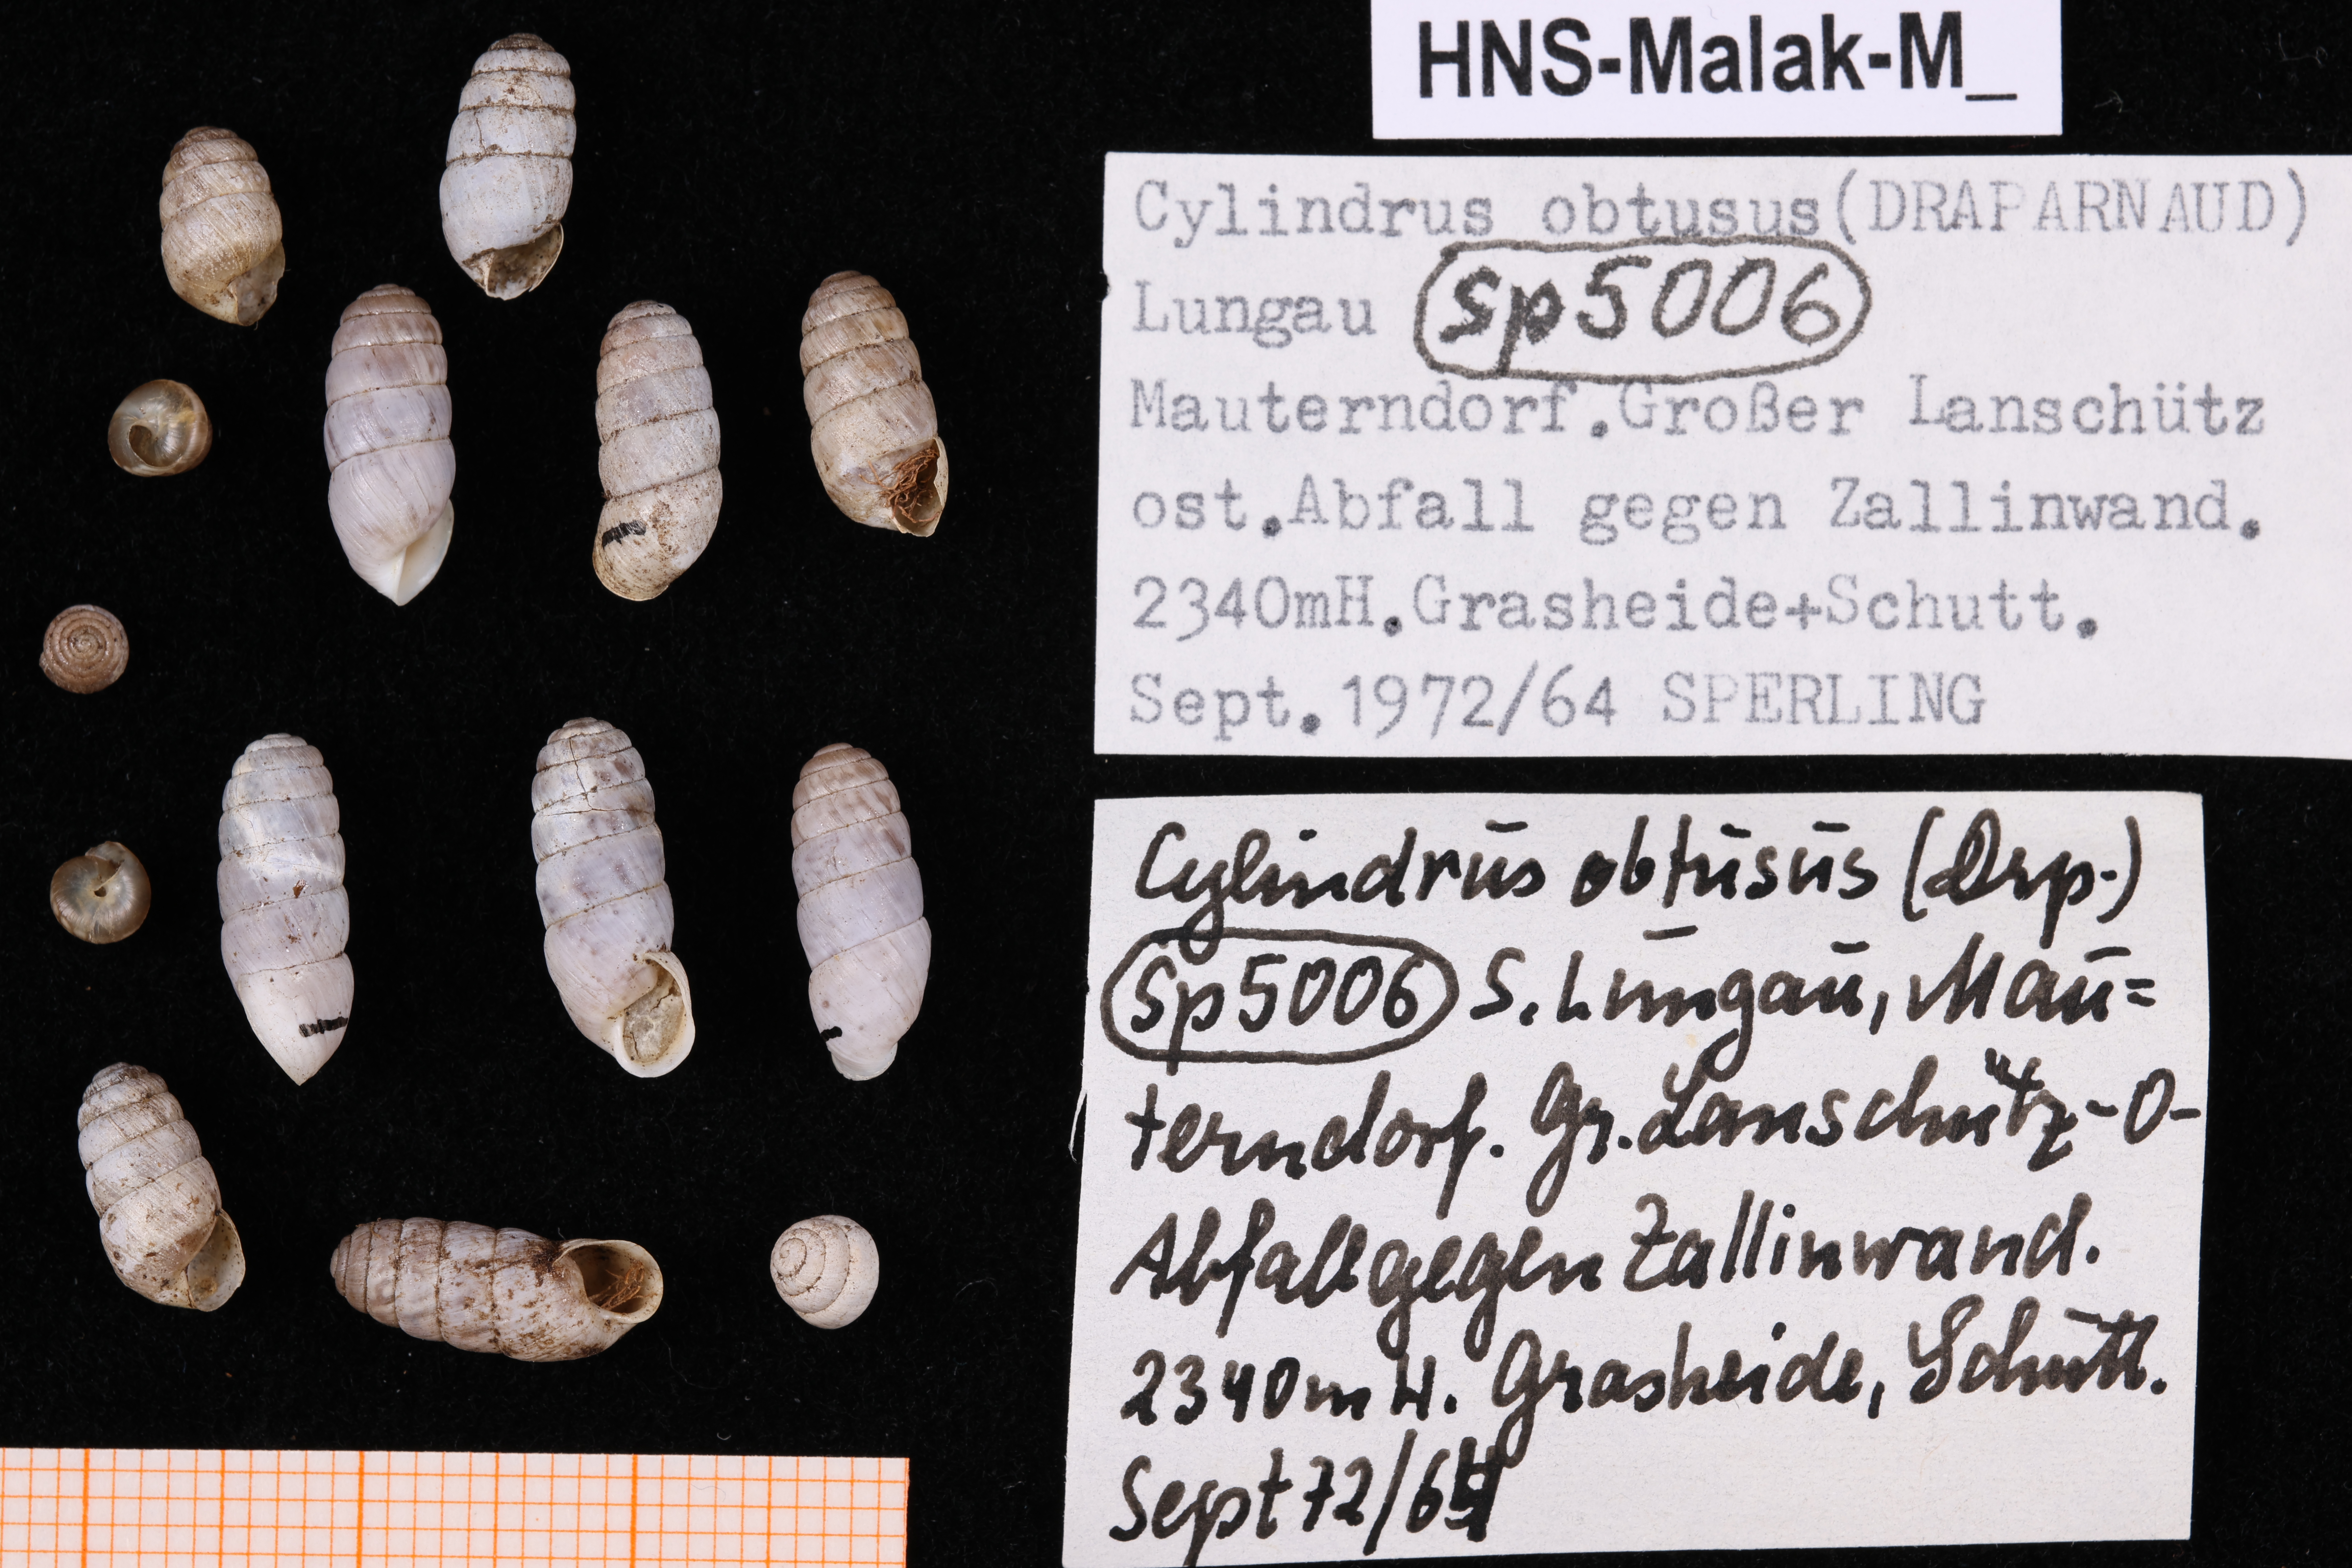 HNS-Malak-M_
Cylindrus obtusus (DRAPARNAUD)
Lungau sp5006
Mauterndorf. Großer Lanschütz
ost. Abfall gegen Zallinwand.
2340mH. Grasheide+Schutt.
Sept. 1972/64 SPERLING
Cylindrus obtusus (Drp.)
Sp5006 S. Lungau, Mau=
terndorf. Gr. Lanschütz-O-
Abfall gegen Zallinwand.
2340m H. Grasheide, Schutt.
Sept 72/64